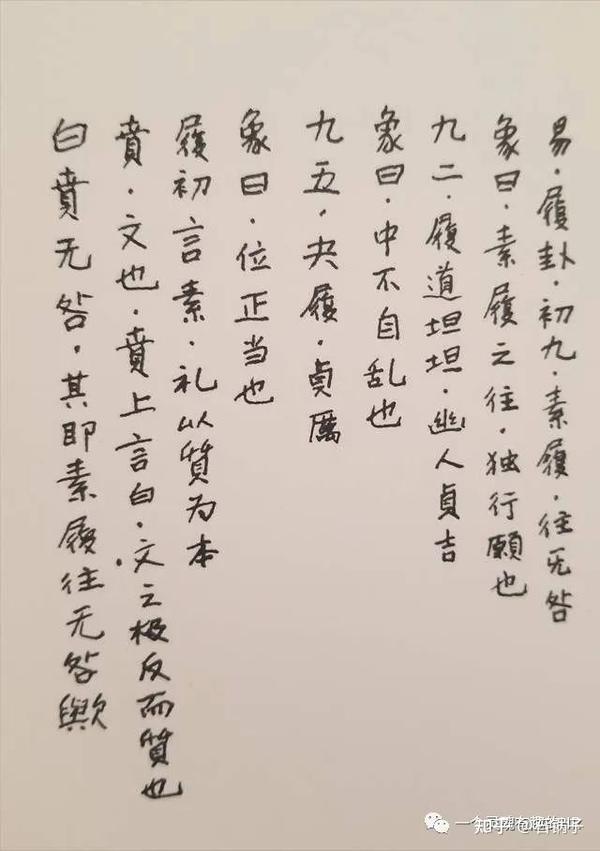 易·履卦·初九·素履·往无咎
象曰·素履之往·独行願也
九二·履道坦坦·幽人貞吉
象曰·中不自乱也
九五·夬履·貞厲
象曰·位正当也
履初言素·礼以質为本
賁·文也·賁上言白·文之极反而質也
白賁无咎·其即素履往无咎歟
知乎